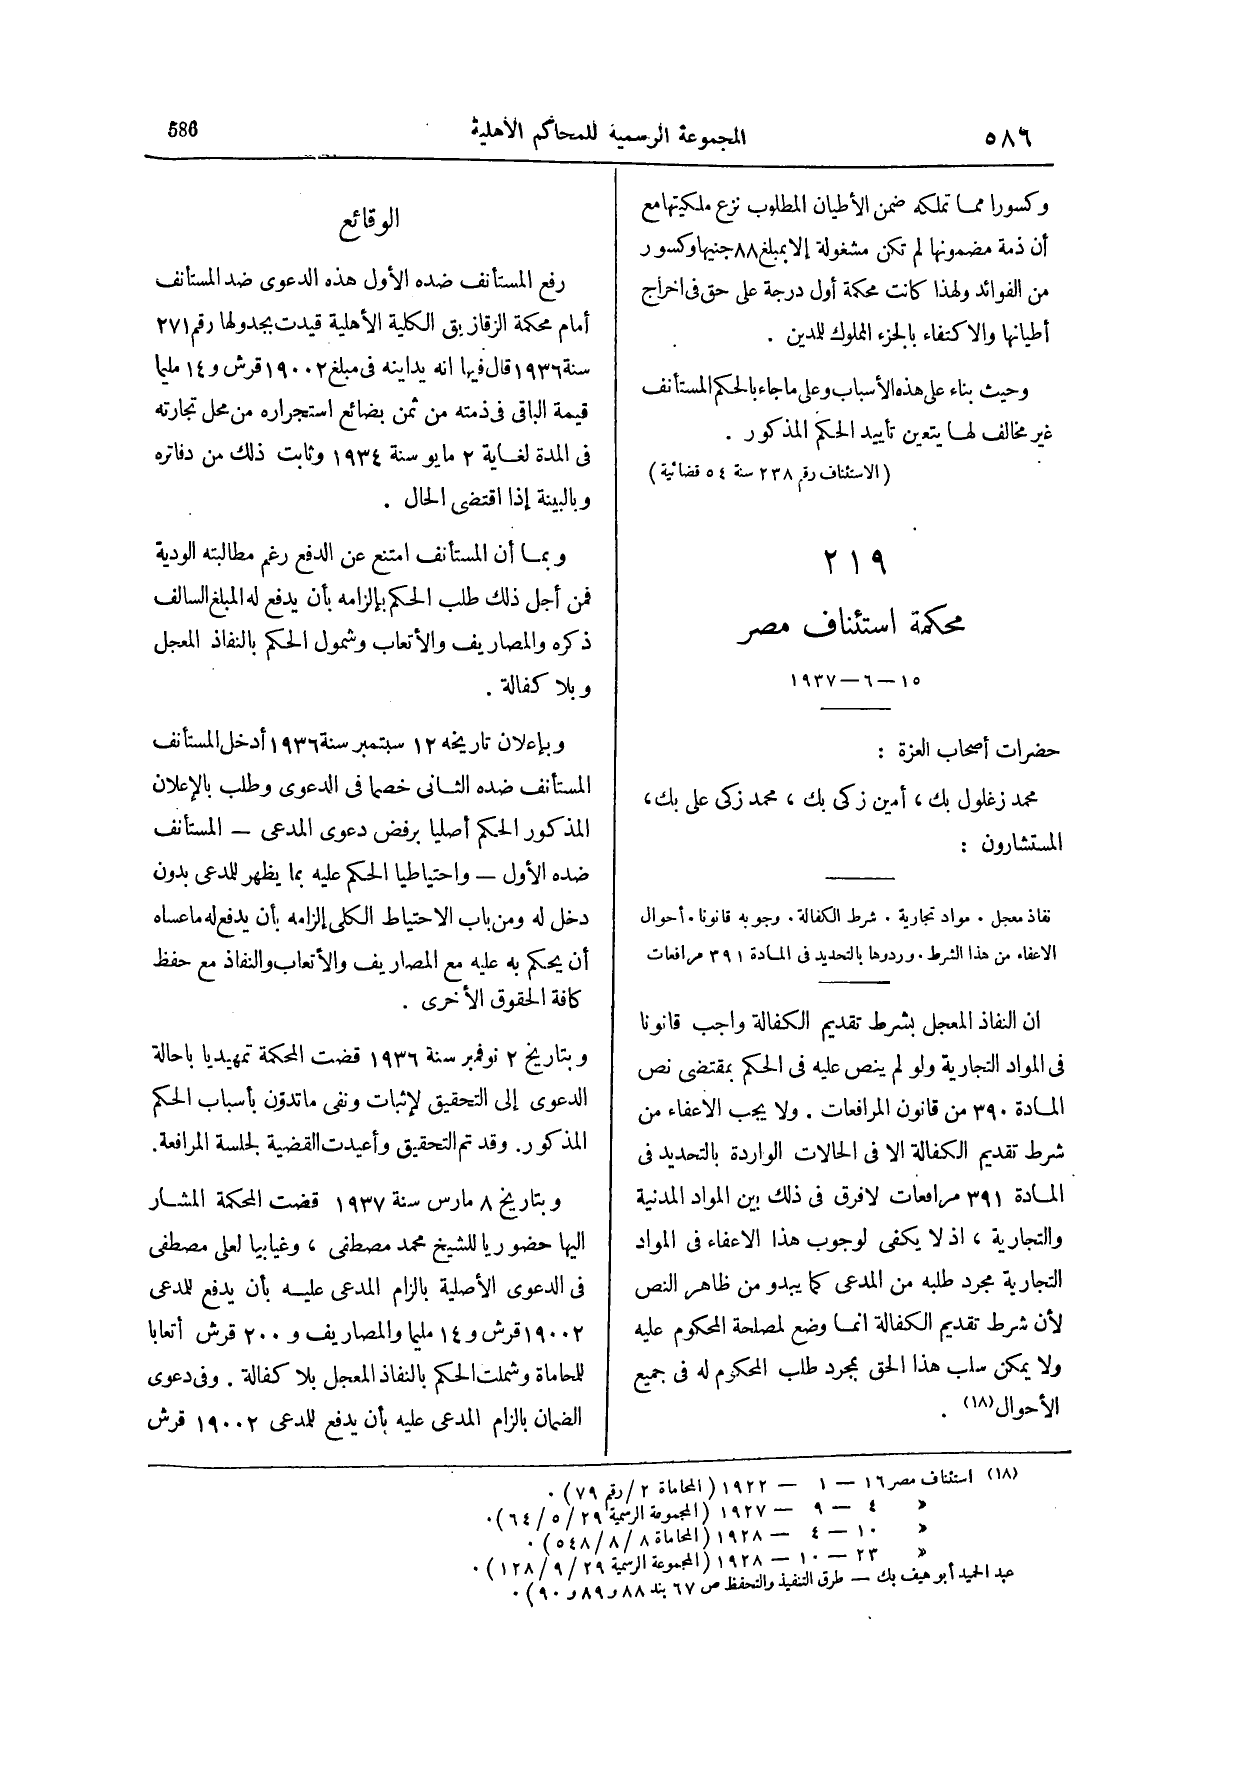 ٥٨٦ المجموعة الرسمية للمحاكم الأهلية 586
وكسورا مما تملكه ضمن الأطيان المطلوب نزع ملكيتها مع
أن ذمة مضمونها لم تكن مشغولة إلا بمبلغ ٨٨ جنيها وكسور
من الفوائد ولهذا كانت محكمة أول درجة على حق فى اخراج
أطيانها والاكتفاء بالجزء المملوك للمدين .
وحيث بناء على هذه الأسباب وعلى ماجاء بالحكم المستأنف
غير مخالف لها يتعين تأييد الحكم المذكور .
( الاستئناف رقم ٢٣٨ سنة ٥٤ قضائية )
٢١٩
محكمة استئناف مصر
١٥ — ٦ — ١٩٣٧
حضرات أصحاب العزة :
محمد زغلول بك ، أمين زكى بك ، محمد زكى على بك ،
المستشارون :
نفاذ معجل . مواد تجارية . شرط الكفالة . وجوبه قانونا . أحوال
الاعفاء من هذا الشرط . وردوها بالتحديد فى المادة ٣٩١ مرافعات
ان النفاذ المعجل بشرط تقديم الكفالة واجب قانونا
فى المواد التجارية ولو لم ينص عليه فى الحكم بمقتضى نص
المادة ٣٩٠ من قانون المرافعات . ولا يجب الاعفاء من
شرط تقديم الكفالة الا فى الحالات الواردة بالتحديد فى
المادة ٣٩١ مرافعات لافرق فى ذلك بين المواد المدنية
والتجارية ، اذ لا يكفى لوجوب هذا الاعفاء فى المواد
التجارية مجرد طلبه من المدعى كما يبدو من ظاهر النص
لأن شرط تقديم الكفالة انما وضع لمصلحة المحكوم عليه
ولا يمكن سلب هذا الحق بمجرد طلب المحكوم له فى جميع
الأحوال (١٨) .
الوقائع
رفع المستأنف ضده الأول هذه الدعوى ضد المستأنف
أمام محكمة الزقازيق الكلية الأهلية قيدت بجدولها رقم ٢٧١
سنة ١٩٣٦ قال فيها انه يداينه فى مبلغ ١٩٠٠٢ قرش و ١٤ مليما
قيمة الباقى فى ذمته من ثمن بضائع استجراره من محل تجارته
فى المدة لغاية ٢ مايو سنة ١٩٣٤ وثابت ذلك من دفاتره
وبالبينة إذا اقتضى الحال .
وبما أن المستأنف امتنع عن الدفع رغم مطالبته الودية
فمن أجل ذلك طلب الحكم بإلزامه بأن يدفع له المبلغ السالف
ذكره والمصاريف والأتعاب وشمول الحكم بالنفاذ المعجل
وبلا كفالة .
وبإعلان تاريخه ١٢ سبتمبر سنة ١٩٣٦ أدخل المستأنف
المستأنف ضده الثانى خصما فى الدعوى وطلب بالإعلان
المذكور الحكم أصليا برفض دعوى المدعى — المستأنف
ضده الأول — واحتياطيا الحكم عليه بما يظهر للمدعى بدون
دخل له ومن باب الاحتياط الكلى إلزامه بأن يدفع له ماعساه
أن يحكم به عليه مع المصاريف والأتعاب والنفاذ مع حفظ
كافة الحقوق الأخرى .
وبتاريخ ٢ نوفمبر سنة ١٩٣٦ قضت المحكمة تمهيديا باحالة
الدعوى إلى التحقيق لإثبات ونفى ماتدوّن بأسباب الحكم
المذكور. وقد تم التحقيق وأعيدت القضية لجلسة المرافعة.
وبتاريخ ٨ مارس سنة ١٩٣٧ قضت المحكمة المشار
اليها حضوريا للشيخ محمد مصطفى ، وغيابيا لعلى مصطفى
فى الدعوى الأصلية بالزام المدعى عليه بأن يدفع للمدعى
١٩٠٠٢ قرش و ١٤ مليما والمصاريف و ٢٠٠ قرش أتعابا
للمحاماة وشملت الحكم بالنفاذ المعجل بلا كفالة . وفى دعوى
الضمان بالزام المدعى عليه بأن يدفع للمدعى ١٩٠٠٢ قرش
(١٨) استئناف مصر ١٦ — ١ — ١٩٢٢ ( المحاماة ٢ / رقم ٧٩ ) .
» ٤ — ٩ — ١٩٢٧ ( المجموعة الرسمية ٢٩ / ٥ / ٦٤ ) .
» ١٠ — ٤ — ١٩٢٨ ( المحاماة ٨ / ٨ / ٥٤٨ ) .
» ٢٣ — ١٠ — ١٩٢٨ ( المجموعة الرسمية ٢٩ / ٩ / ١٢٨ ) .
عبد الحميد أبو هيف بك — طرق التنفيذ والتحفظ ص ٦٧ بند ٨٨ و ٨٩ و ٩٠ ) .